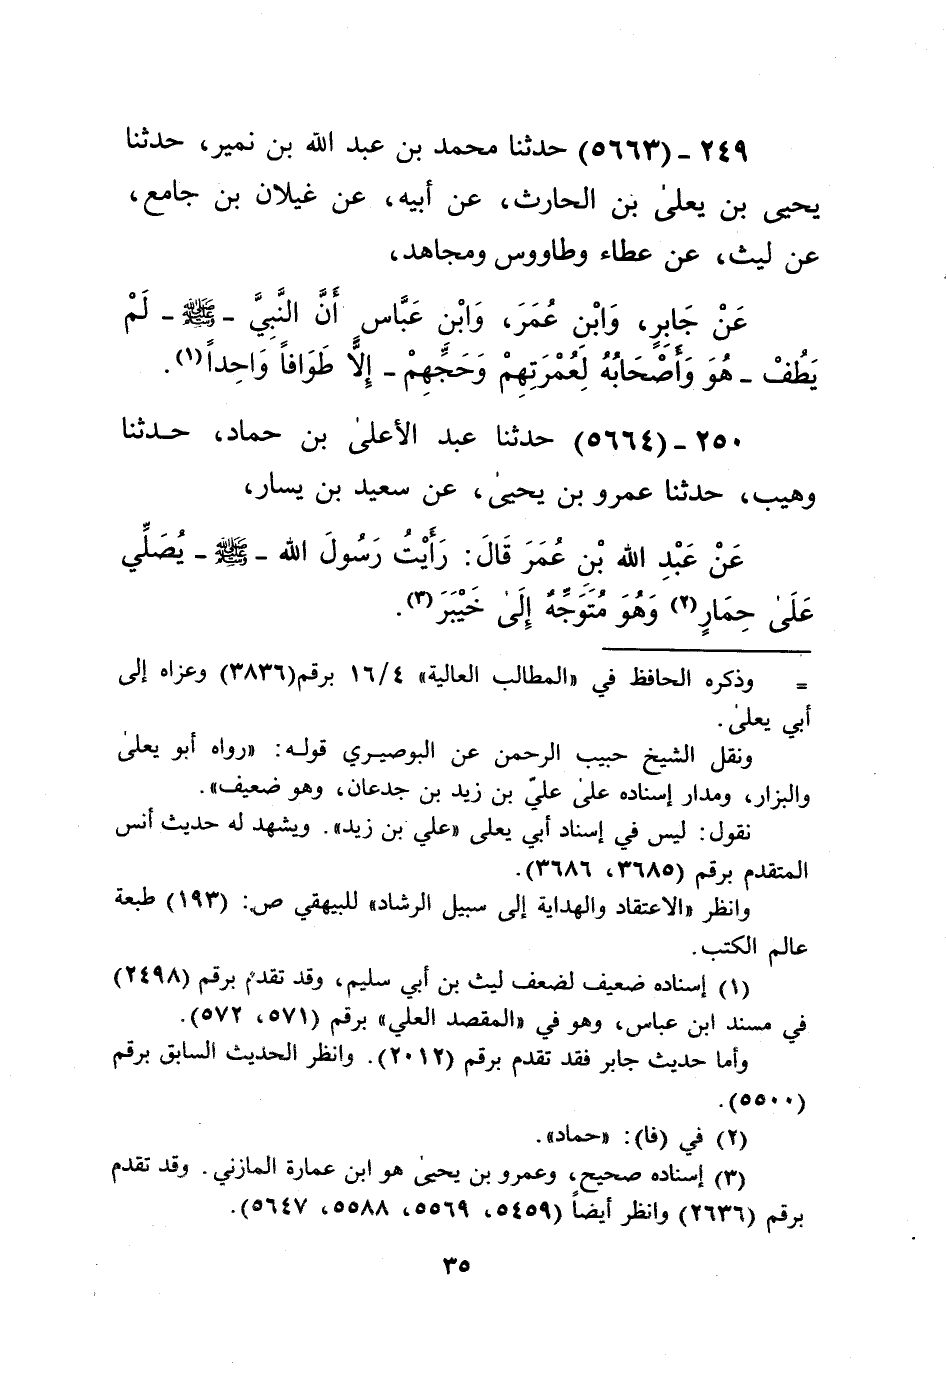 ٢٤٩ ـ (٥٦٦٣) حدثنا محمد بن عبد الله بن نمير، حدثنا
يحيى بن يعلىٰ بن الحارث، عن أبيه، عن غيلان بن جامع،
عن ليث، عن عطاء وطاووس ومجاهد،
عَنْ جَابِرٍ، وَابْنِ عُمَرَ، وَابْنِ عَبَّاسٍ أَنَّ النَّبِيَّ ـ ﷺ ـ لَمْ
يَطُفْ ـ هُوَ وَأَصْحَابُهُ لِعُمْرَتِهِمْ وَحَجِّهِمْ ـ إِلاَّ طَوَافاً وَاحِداً(١).
٢٥٠ ـ (٥٦٦٤) حدثنا عبد الأعلىٰ بن حماد، حـدثنا
وهيب، حدثنا عمرو بن يحيىٰ، عن سعيد بن يسار،
عَنْ عَبْدِ الله بْنِ عُمَرَ قَالَ: رَأَيْتُ رَسُولَ الله ـ ﷺ ـ يُصَلِّي
عَلَىٰ حِمَارٍ(٢) وَهُوَ مُتَوَجِّهٌ إِلَىٰ خَيْبَرَ(٣).
= وذكره الحافظ في «المطالب العالية» ١٦/٤ برقم(٣٨٣٦) وعزاه إلى
أبي يعلىٰ.
ونقل الشيخ حبيب الرحمن عن البوصيري قولـه: «رواه أبو يعلىٰ
والبزار، ومدار إسناده علىٰ عليّ بن زيد بن جدعان، وهو ضعيف».
نقول: ليس في إسناد أبي يعلى «علي بن زيد». ويشهد له حديث أنس
المتقدم برقم (٣٦٨٥، ٣٦٨٦).
وانظر «الاعتقاد والهداية إلى سبيل الرشاد» للبيهقي ص: (١٩٣) طبعة
عالم الكتب.
(١) إسناده ضعيف لضعف ليث بن أبي سليم، وقد تقدم برقم (٢٤٩٨)
في مسند ابن عباس، وهو في «المقصد العلي» برقم (٥٧١، ٥٧٢).
وأما حديث جابر فقد تقدم برقم (٢٠١٢). وانظر الحديث السابق برقم
(٥٥٠٠).
(٢) في (فا): «حماد».
(٣) إسناده صحيح، وعمرو بن يحيىٰ هو ابن عمارة المازني. وقد تقدم
برقم (٢٦٣٦) وانظر أيضاً (٥٤٥٩، ٥٥٦٩، ٥٥٨٨، ٥٦٤٧).
٣٥